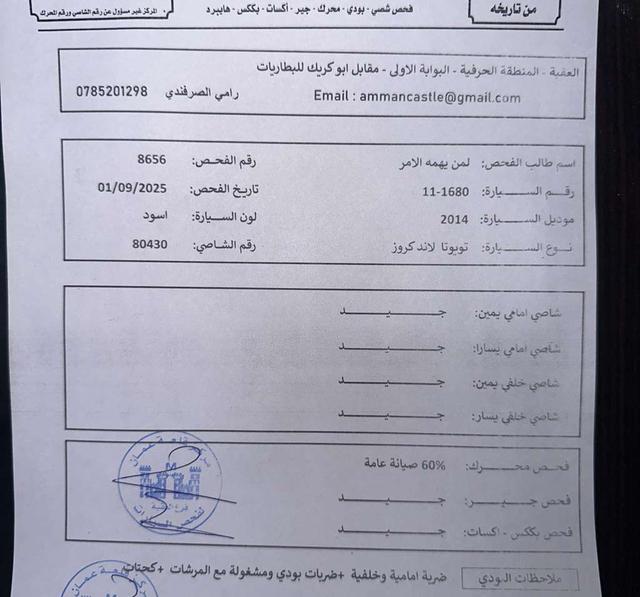 من تاريخه
فحص شصي - بودي - محرك - جير - أكسات - بككس - هايبرد
* المركز غير مسؤول عن رقم الشاصي ورقم المحرك
العقبة - المنطقة الحرفية - البوابة الاولى - مقابل ابو كريك للبطاريات
Email : ammancastle@gmail.com رامي الصرفندي 0785201298
اسم طالب الفحص: لمن يهمه الامر رقم الفحص: 8656
رقم السيارة: 11-1680 تاريخ الفحص: 01/09/2025
موديل السيارة: 2014 لون السيارة: اسود
نوع السيارة: تويوتا لاند كروز رقم الشاصي: 80430
شاصي امامي يمين: جيد
شاصي امامي يسار: جيد
شاصي خلفي يمين: جيد
شاصي خلفي يسار: جيد
فحص محرك: 60% صيانة عامة
فحص جير: جيد
فحص بككس - اكسات: جيد
ملاحظات البودي ضربة امامية وخلفية +ضربات بودي ومشغولة مع المرشات +كحتات
مركز قلعة عمان
لفحص السيارات